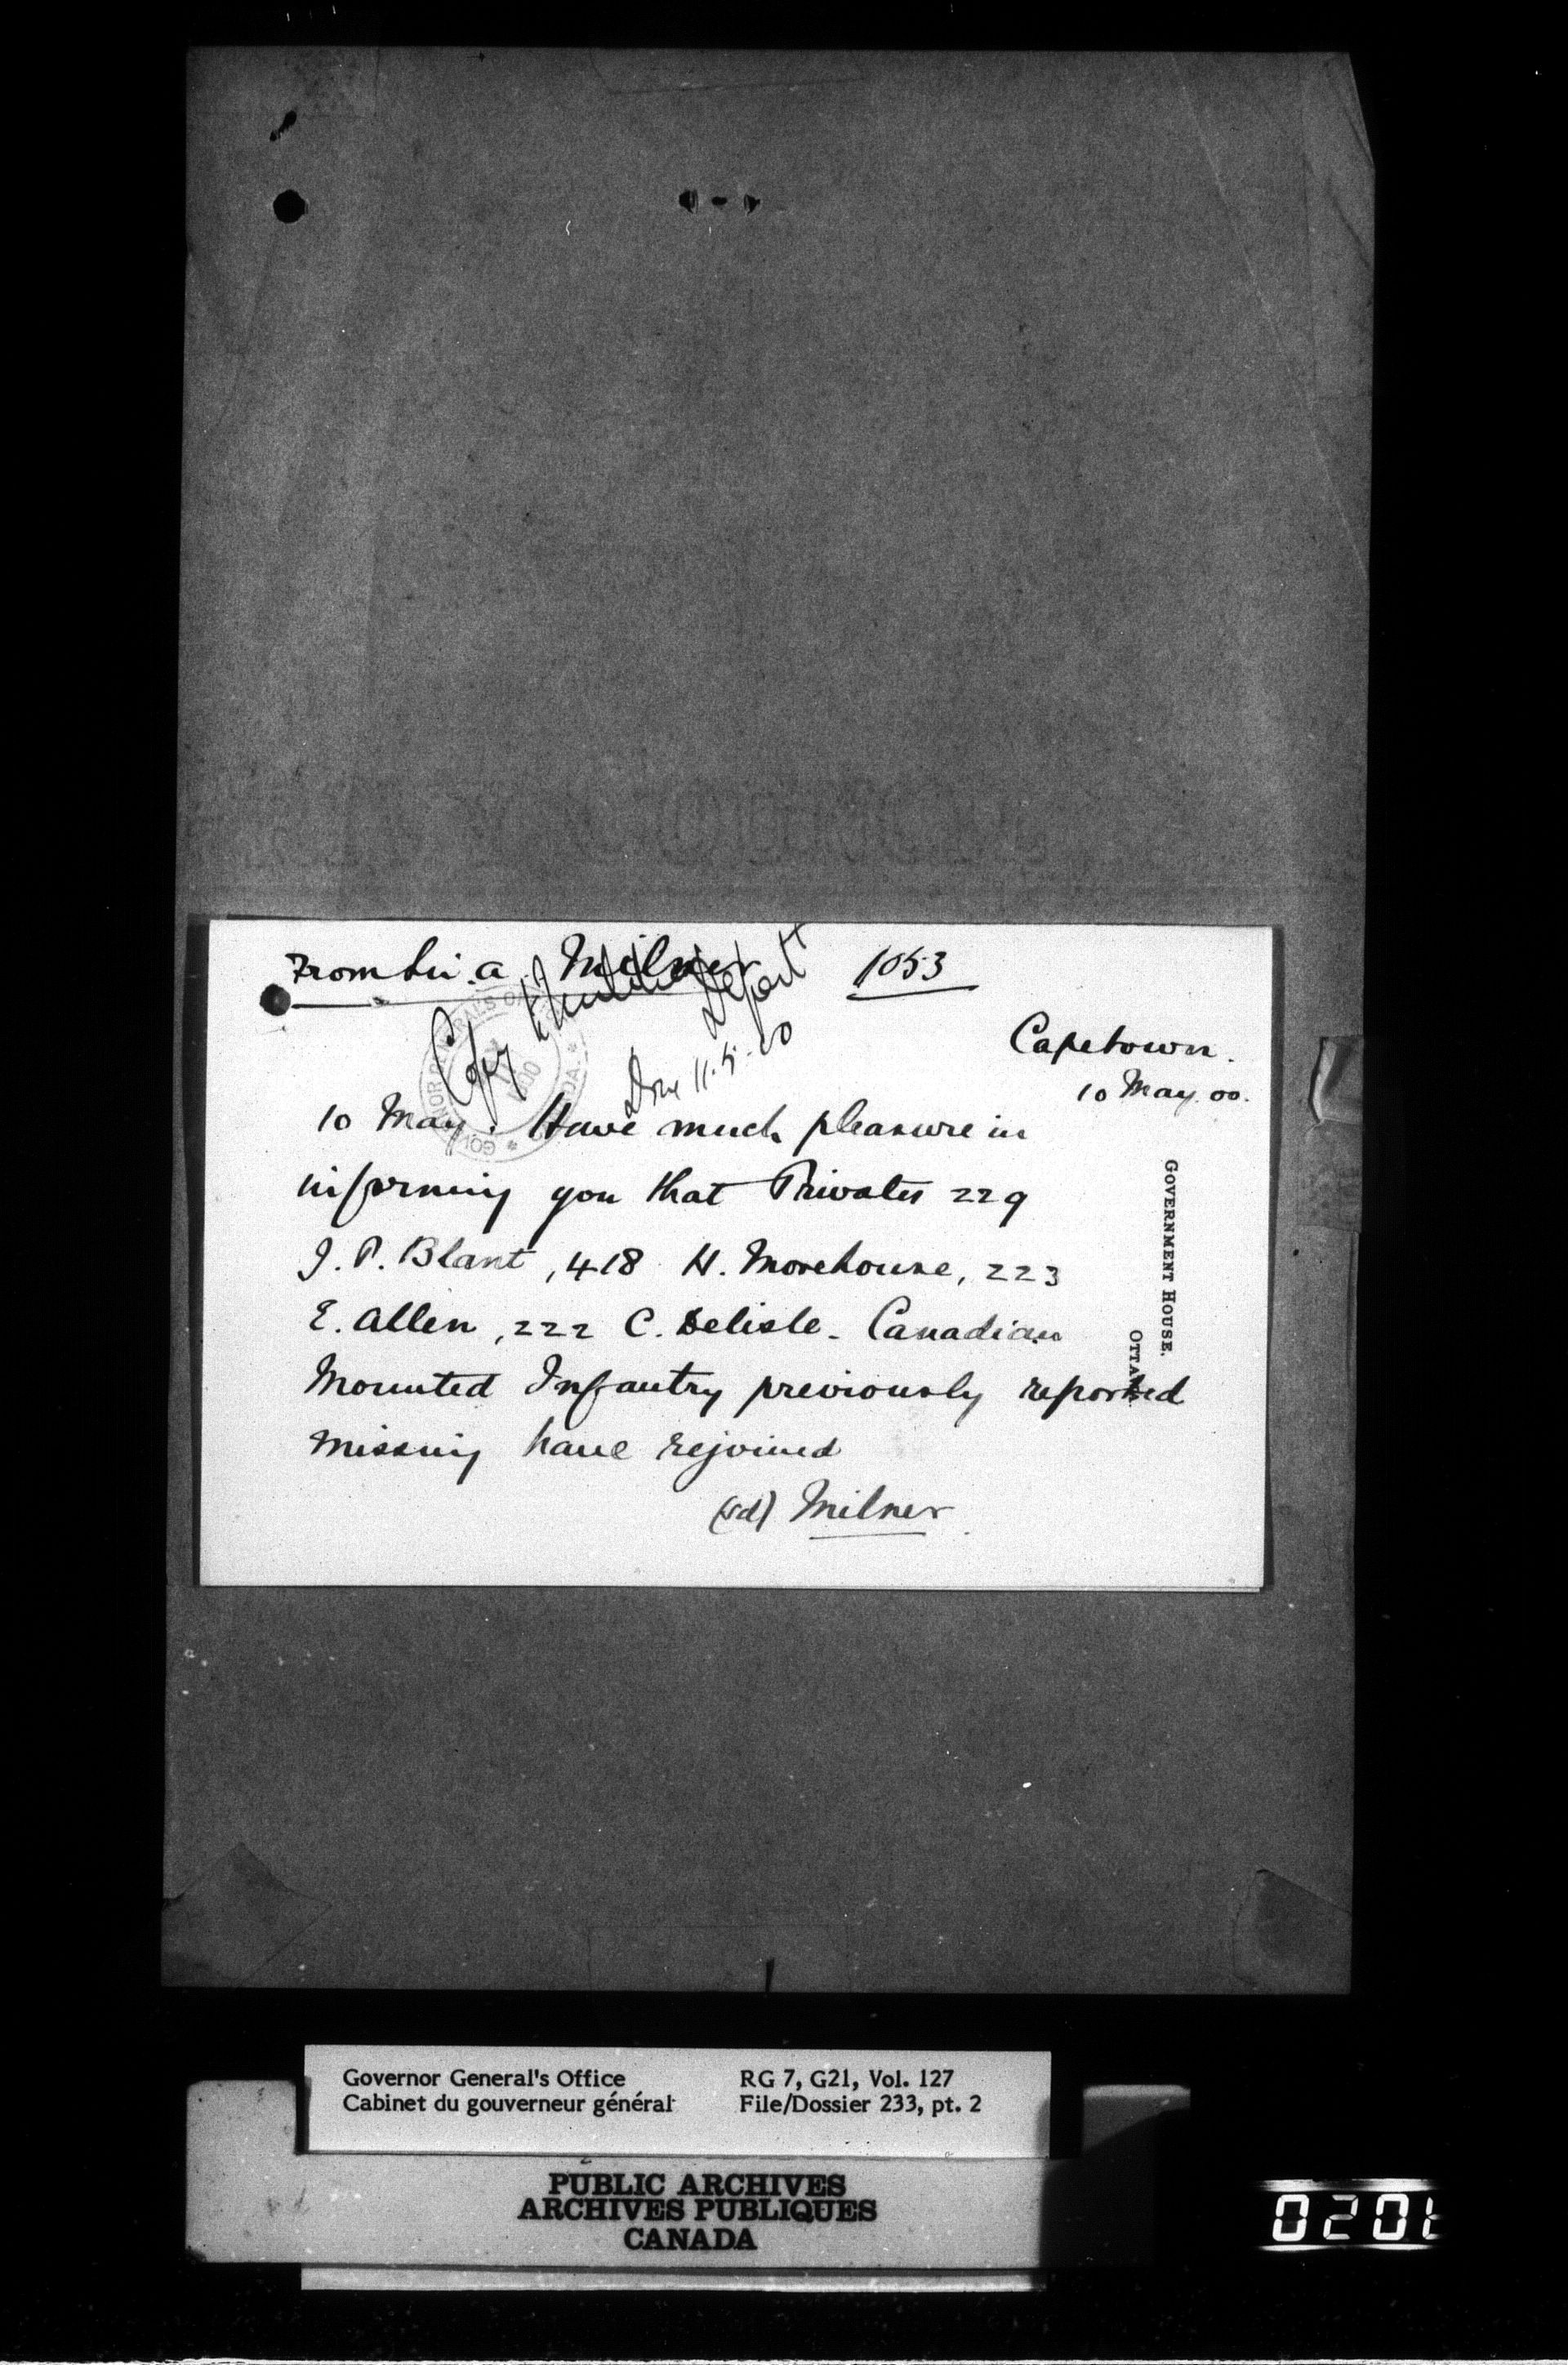 From Sir A. Milner
1053
Copy Militia Depart
Dne 11.5.00
Capetown.
10 May. 00.
10 May. Have much pleasure in
informing you that Privates 229
J. P. Blant, 418 H. Morehouse, 223
E. Allen, 222 C. Delisle - Canadian
Mounted Infantry previously reported
missing have rejoined
(sd) Milner
GOVERNMENT HOUSE.
OTTAWA
Governor General's Office
Cabinet du gouverneur général
RG 7, G21, Vol. 127
File/Dossier 233, pt. 2
PUBLIC ARCHIVES
ARCHIVES PUBLIQUES
CANADA
0201